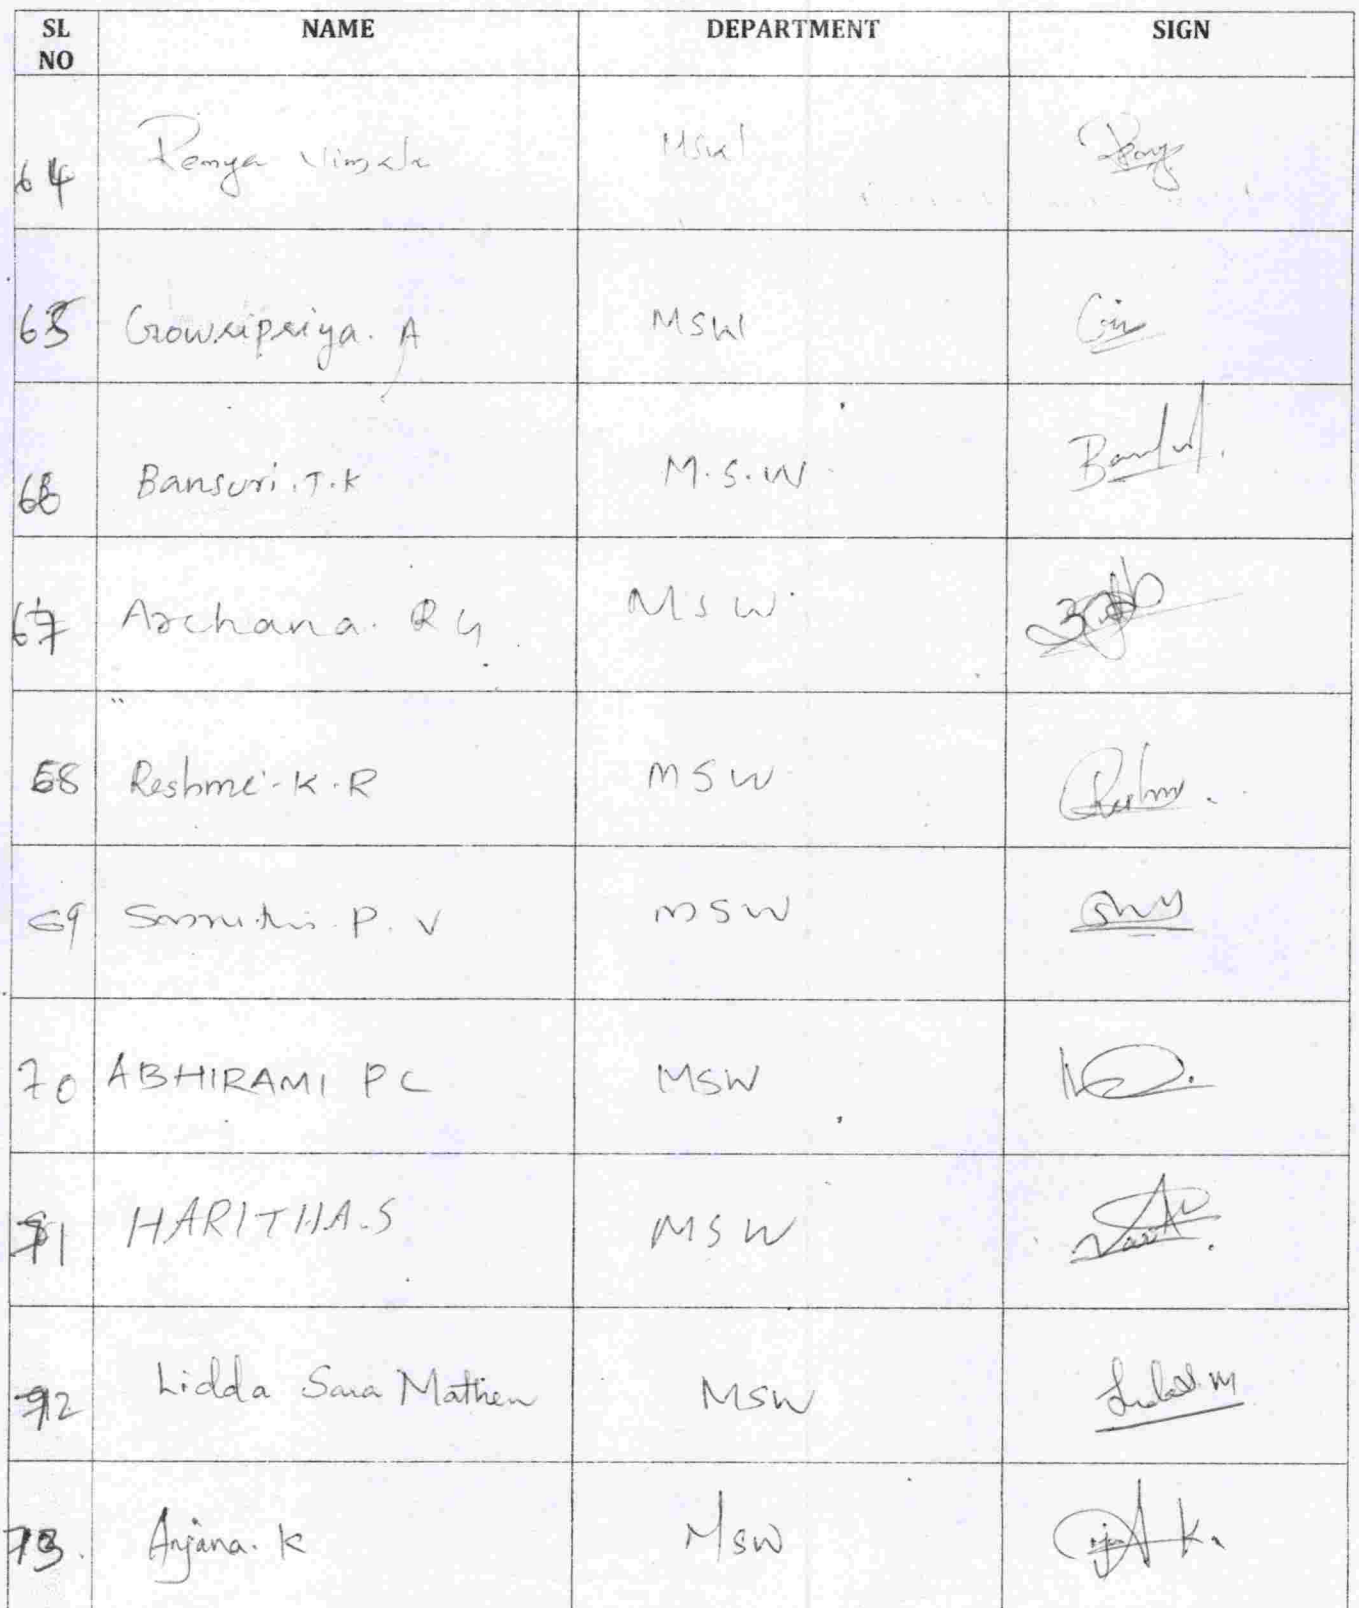 SL NO NAME DEPARTMENT SIGN
64 Remya Vimala MSW
65 Gowripriya. A MSW
66 Bansuri.T.K M.S.W
67 Archana. R G MSW
68 Reshmi-K.R MSW
69 P.V MSW
70 ABHIRAMI PC MSW
71 HARITHA.S MSW
72 Lidda Sara Mathew MSW
73. Anjana. K MSW